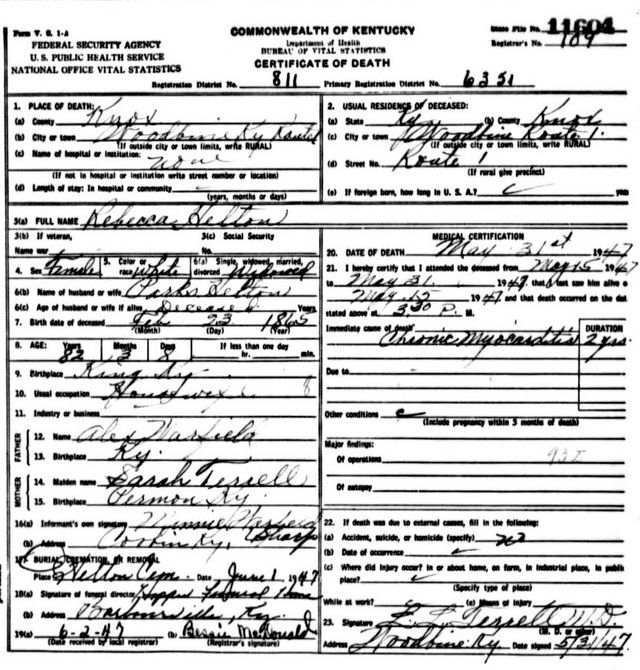 Form V. S. 1-A
FEDERAL SECURITY AGENCY
U. S. PUBLIC HEALTH SERVICE
NATIONAL OFFICE VITAL STATISTICS
COMMONWEALTH OF KENTUCKY
Department of Health
BUREAU OF VITAL STATISTICS
CERTIFICATE OF DEATH
State File No. 11604
Registrar's No. 109
Registration District No. 811 Primary Registration District No. 6351
1. PLACE OF DEATH:
(a) County Knox
(b) City or town Woodbine Ky Route 1
(If outside city or town limits, write RURAL)
(c) Name of hospital or institution:
None
(If not in hospital or institution write street number or location)
(d) Length of stay: In hospital or community
(years, months or days)
2. USUAL RESIDENCE OF DECEASED:
(a) State Ky. (b) County Knox
(c) City or town Woodbine Route 1.
(If outside city or town limits, write RURAL)
(d) Street No. Route 1
(If rural give precinct)
(e) If foreign born, how long in U. S. A.? years
3(a) FULL NAME Rebecca Helton
3(b) If veteran,
Name war
3(c) Social Security
No.
4. Sex Female 5. Color or race White 6(a) Single, widowed, married, divorced Widowed
6(b) Name of husband or wife Helton
6(c) Age of husband or wife if alive Deceased Years
7. Birth date of deceased Feb 23 1865
(Month) (Day) (Year)
8. AGE: Years 82 Months 3 Days 8 If less than one day hr. min.
9. Birthplace King Ky.
10. Usual occupation Housewife
11. Industry or business
FATHER
12. Name Alex Warfield
13. Birthplace Ky.
MOTHER
14. Maiden name Sarah Terrell
15. Birthplace Permon Ky.
16(a) Informant's own signature Minnie Sharp
(b) Address Corbin Ky.
17. BURIAL, CREMATION, OR REMOVAL
Place Helton Cem. Date June 1, 1947
18(a) Signature of funeral director Hopper Funeral Home
(b) Address Barbourville, Ky.
19(a) 6-2-47 (b) Bessie McDonald
(Date received by local registrar) (Registrar's signature)
MEDICAL CERTIFICATION
20. DATE OF DEATH May 31st 1947
21. I hereby certify that I attended the deceased from May 15 1947
to May 31 1947, that I last saw him alive on
May 15 1947 and that death occurred on the date
stated above at 3:30 P. M.
Immediate cause of death DURATION
Chronic Myocarditis 2 yrs.
Due to
Other conditions
(Include pregnancy within 3 months of death)
Major findings:
Of operations
Of autopsy
22. If death was due to external causes, fill in the following:
(a) Accident, suicide, or homicide (specify) no
(b) Date of occurrence
(c) Where did injury occur? in or about home, on farm, in industrial place, in public
place?
(Specify type of place)
While at work? (e) Means of injury
23. Signature Terrell M.D.
(M. D. or other)
Address Woodbine Ky. Date signed 5/31/47.